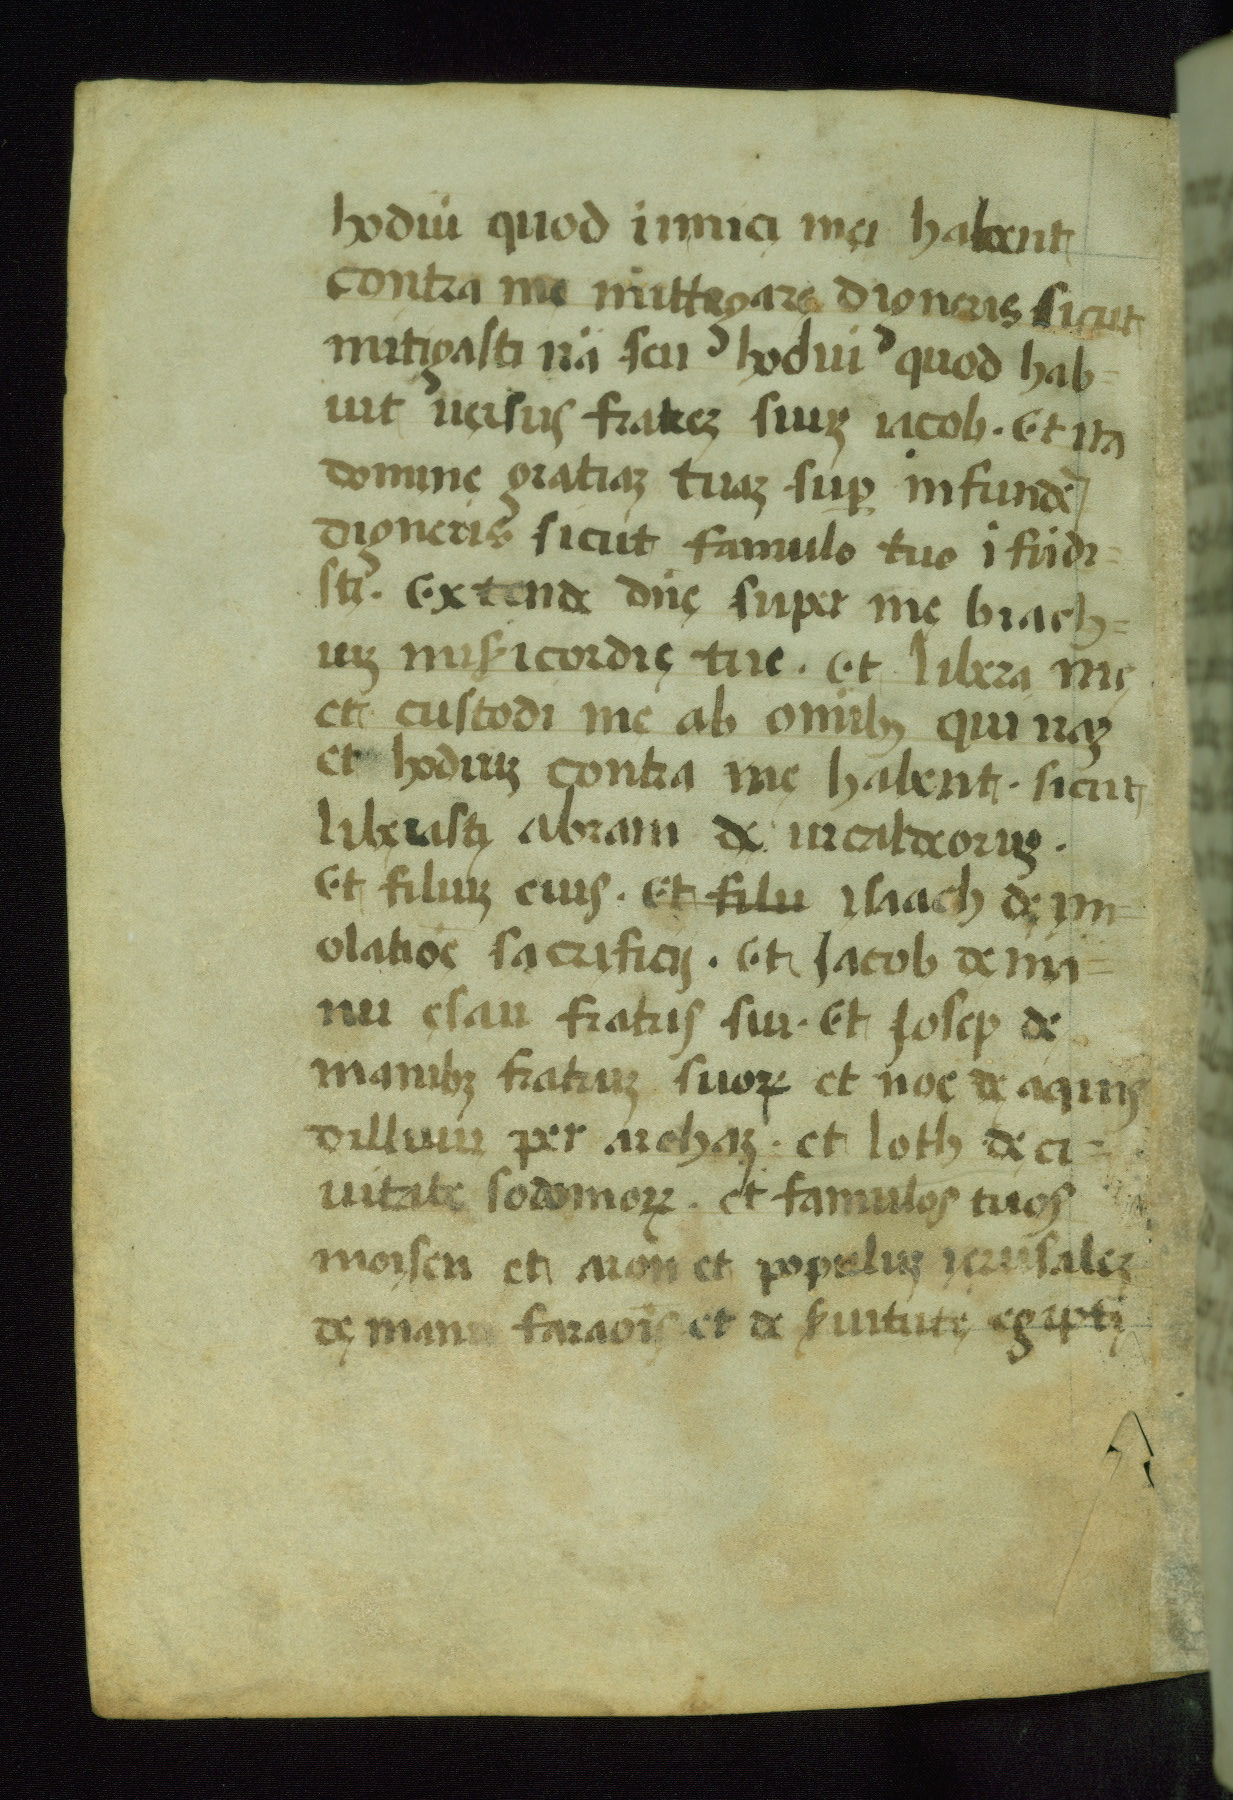 hodiū quod inimici mei habent
contra me mittigare digneris sicut
mitigasti irā hodiū quod hab=
uit uersus fratrez suuz iacob. Et ita
domine gratiaz tuaz sup infunde
digneris sicut famulo tuo ifūdi=
sti. Extende dn̄e super me brach=
uz misicordie tue. Et libera me
et custodi me ab omībꝫ qui iraz
et hodiuz contra me habent. sicut
liberasti abram de ur caldeoruz.
Et filiuz eius. Et filiu ysaach de ym=
olatiōe sacrificij. Et Jacob de mā=
nu esau fratris sui. Et Josep de
manibꝫ fratruz suoꝝ et noe de aquis
dilluuii per archaz. et loth de ci=
uitate sodomoꝝ. et famulos tuos
moysen et aron et populuz yerusalez
de manu faraoīs et de s̄uitute egipti